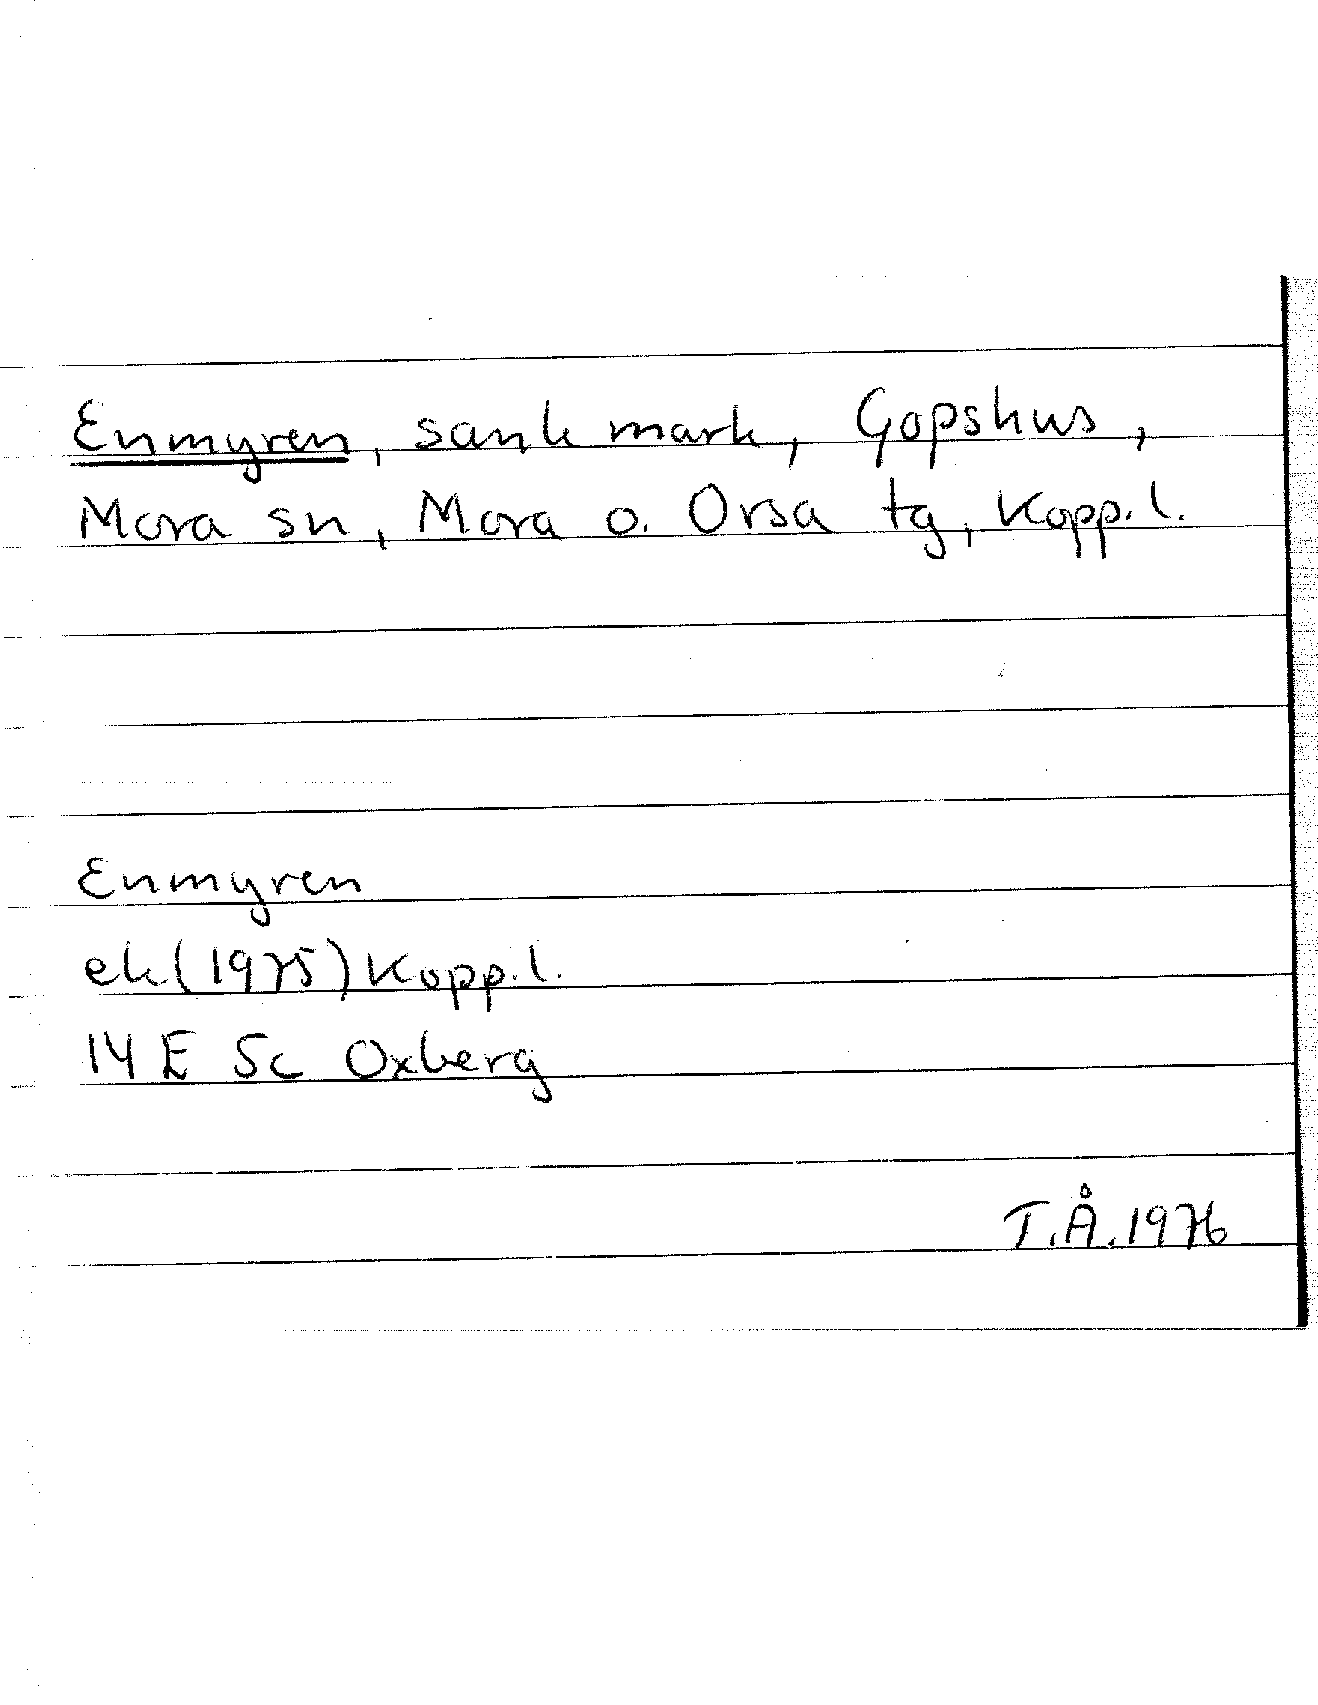 Enmyren, sank mark, Gopshus,
Mora sn, Mora o. Orsa tg, Kopp. l.
Enmyren
ek (1975) Kopp. l.
14 E 5c Oxberg
T.Å. 1976